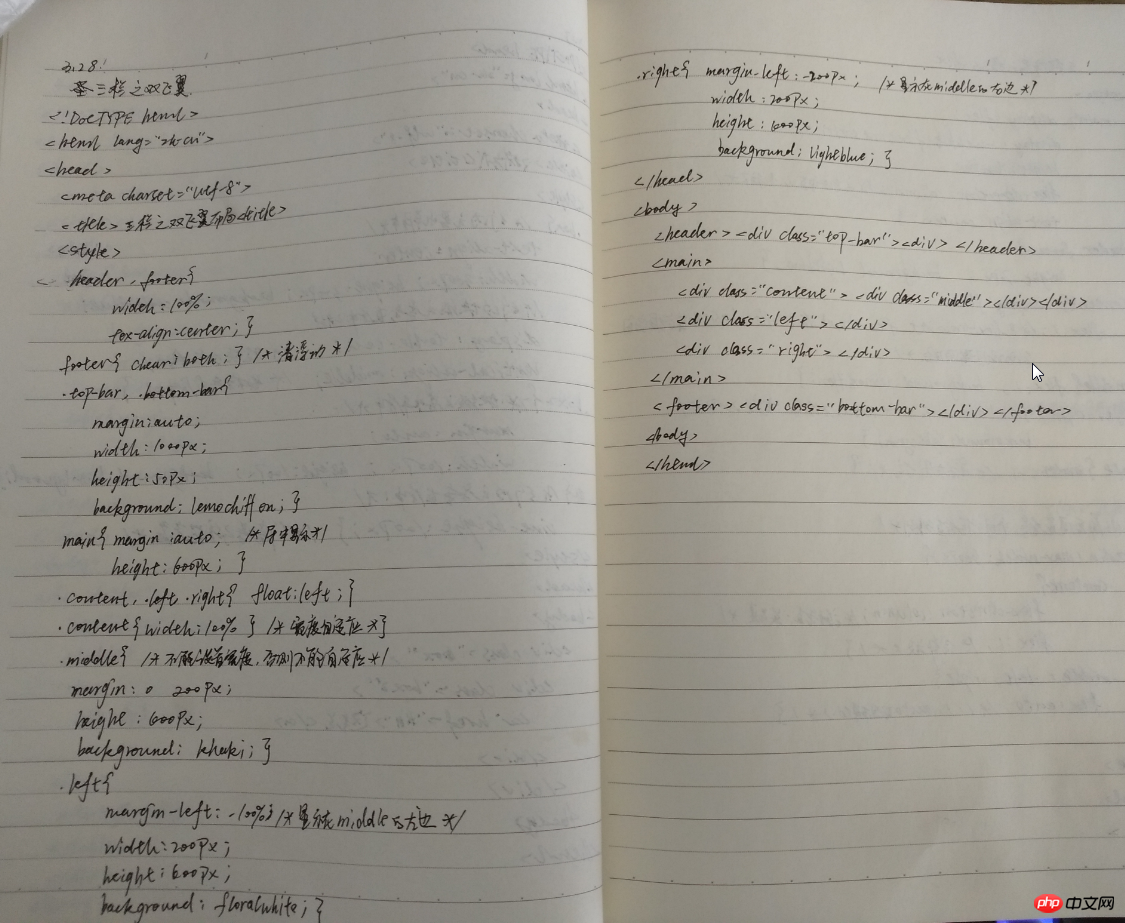 3.28:
三栏之双飞翼
<!DocTYPE html>
<html lang="zh-cn">
<head>
<meta charset="utf-8">
<title>三栏之双飞翼布局<title>
<style>
header, footer{
width:100%;
tex-align:center;}
footer{ clear:both;} /*清浮动*/
.top-bar, .bottom-bar{
margin:auto;
width:1000px;
height:50px;
background: lemochiffon;}
main{ margin:auto; /*居中显示*/
height:600px; }
.content, .left .right{ float:left;}
.content{width:100% } /*宽度自适应*}
.middle{ /*不能设置宽度,否则不能自适应*/
margin: 0 200px;
height: 600px;
background: khaki;}
.left{
margin-left: -100%; /*显示在middle的左边*/
width:200px;
height:600px;
background: floralwhite;}
.right{ margin-left:-200px; /*显示在middle的右边*/
width:200px;
height:600px;
background: lightblue; }
</head>
<body>
<header><div class="top-bar"><div> </header>
<main>
<div class="content"> <div class="middle"></div></div>
<div class="left"> </div>
<div class="right"> </div>
</main>
<footer><div class="bottom-bar"></div></footer>
<body>
</html>
php中文网